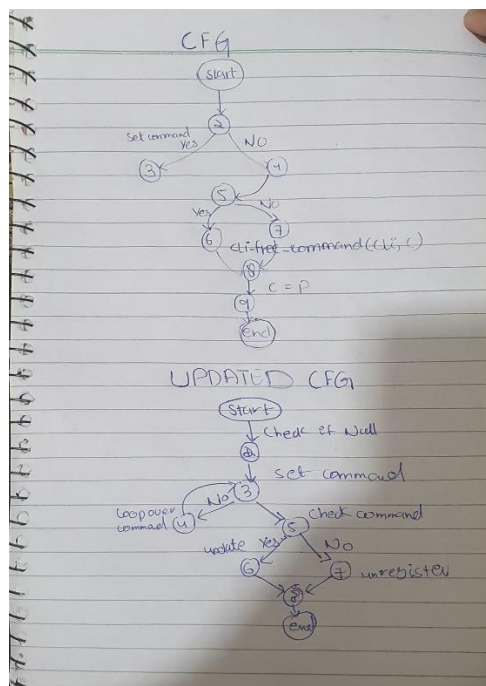 CFG
Start
2
Set command
Yes
NO
3
4
5
Yes
No
6
7
cli-free-command(cli, c)
8
c = P
9
end
UPDATED CFG
Start
Check if Null
2
set command
No
3
Loop over
command
4
5
Check command
update
Yes
No
6
7
unregister
8
end